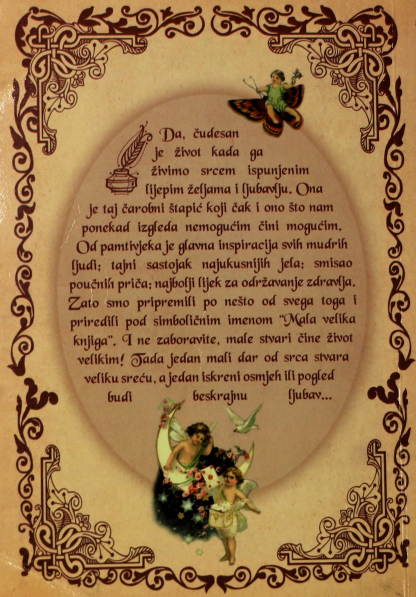 Da, čudesan
je život kada ga
živimo srcem ispunjenim
lijepim željama i ljubavlju. Ona
je taj čarobni štapić koji čak i ono što nam
ponekad izgleda nemogućim čini mogućim.
Od pamtivjeka je glavna inspiracija svih mudrih
ljudi; tajni sastojak najukusnijih jela; smisao
poučnih priča; najbolji lijek za održavanje zdravlja.
Zato smo pripremili po nešto od svega toga i
priredili pod simboličnim imenom "Mala velika
knjiga". I ne zaboravite, male stvari čine život
velikim! Tada jedan mali dar od srca stvara
veliku sreću, a jedan iskreni osmjeh ili pogled
budi beskrajnu ljubav...